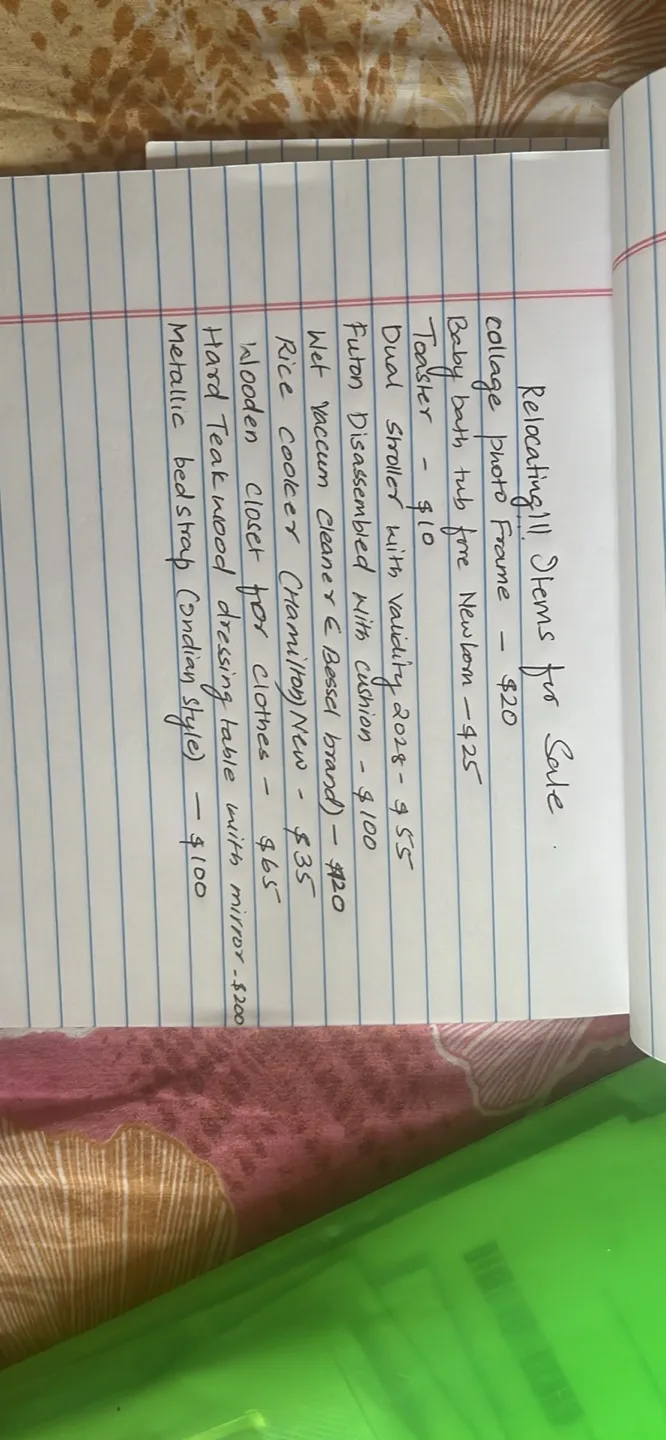 Relocating!!! Items for Sale.
collage photo Frame - $20
Baby bath tub fore Newborn - $25
Toaster - $10
Dual stroller with validity 2028 - $55
Futon Disassembled with cushion - $100
Wet vaccum cleaner ( Bessel brand) - $120
Rice cooker (Hamilton) New - $35
Wooden closet for clothes - $65
Hard Teakwood dressing table with mirror - $200
Metallic bed strap (indian style) - $100